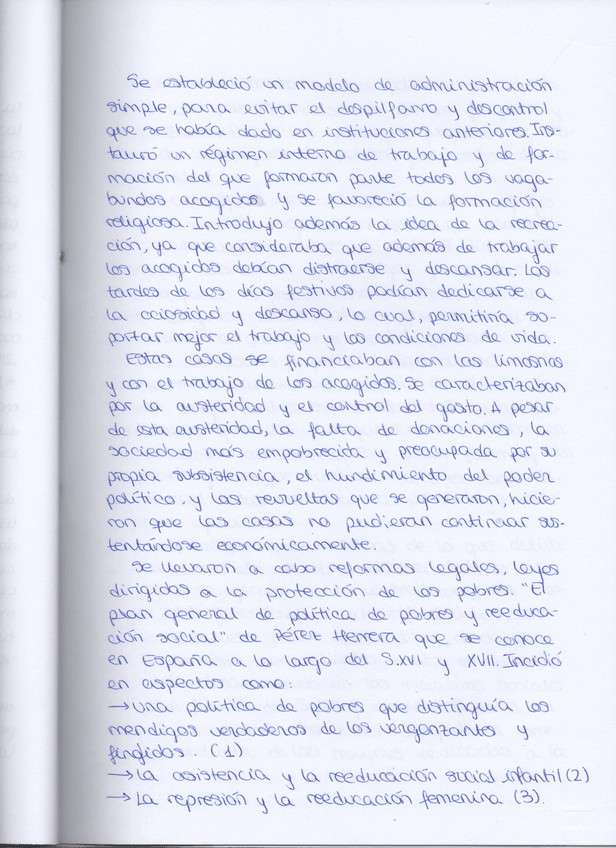 Se estableció un modelo de administración
simple, para evitar el despilfarro y descontrol
que se había dado en instituciones anteriores. Ins-
tauró un régimen interno de trabajo y de for-
mación del que formaron parte todos los vaga-
bundos acogidos y se favoreció la formación
religiosa. Introdujo además la idea de la recrea-
ción, ya que consideraba que además de trabajar
los acogidos debían distraerse y descansar. Las
tardes de los días festivos podían dedicarse a
la ociosidad y descanso, lo cual, permitiría so-
portar mejor el trabajo y las condiciones de vida.
Estas casas se financiaban con las limosnas
y con el trabajo de los acogidos. Se caracterizaban
por la austeridad y el control del gasto. A pesar
de esta austeridad, la falta de donaciones, la
sociedad más empobrecida y preocupada por su
propia subsistencia, el hundimiento del poder
político, y las revueltas que se generaron, hicie-
ron que las casas no pudieran continuar sus-
tentándose económicamente.
Se llevaron a cabo reformas legales, leyes
dirigidas a la protección de los pobres. "El
plan general de política de pobres y reeduca-
ción social" de Pérez Herrera que se conoce
en España a lo largo del S.XVI y XVII. Incidió
en aspectos como:
→ Una política de pobres que distinguía los
mendigos verdaderos de los vergonzantes y
fingidos. (1)
→ La asistencia y la reeducación social infantil (2)
→ La represión y la reeducación femenina (3).